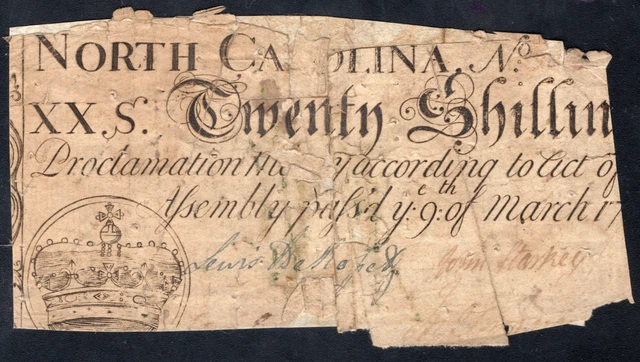 NORTH CAROLINA. No.
XX,S. Twenty Shillin
Proclamation Money according to Act of
Assembly pass'd ye. 9th. of March 17
Lewis De Rosset
John Starkey